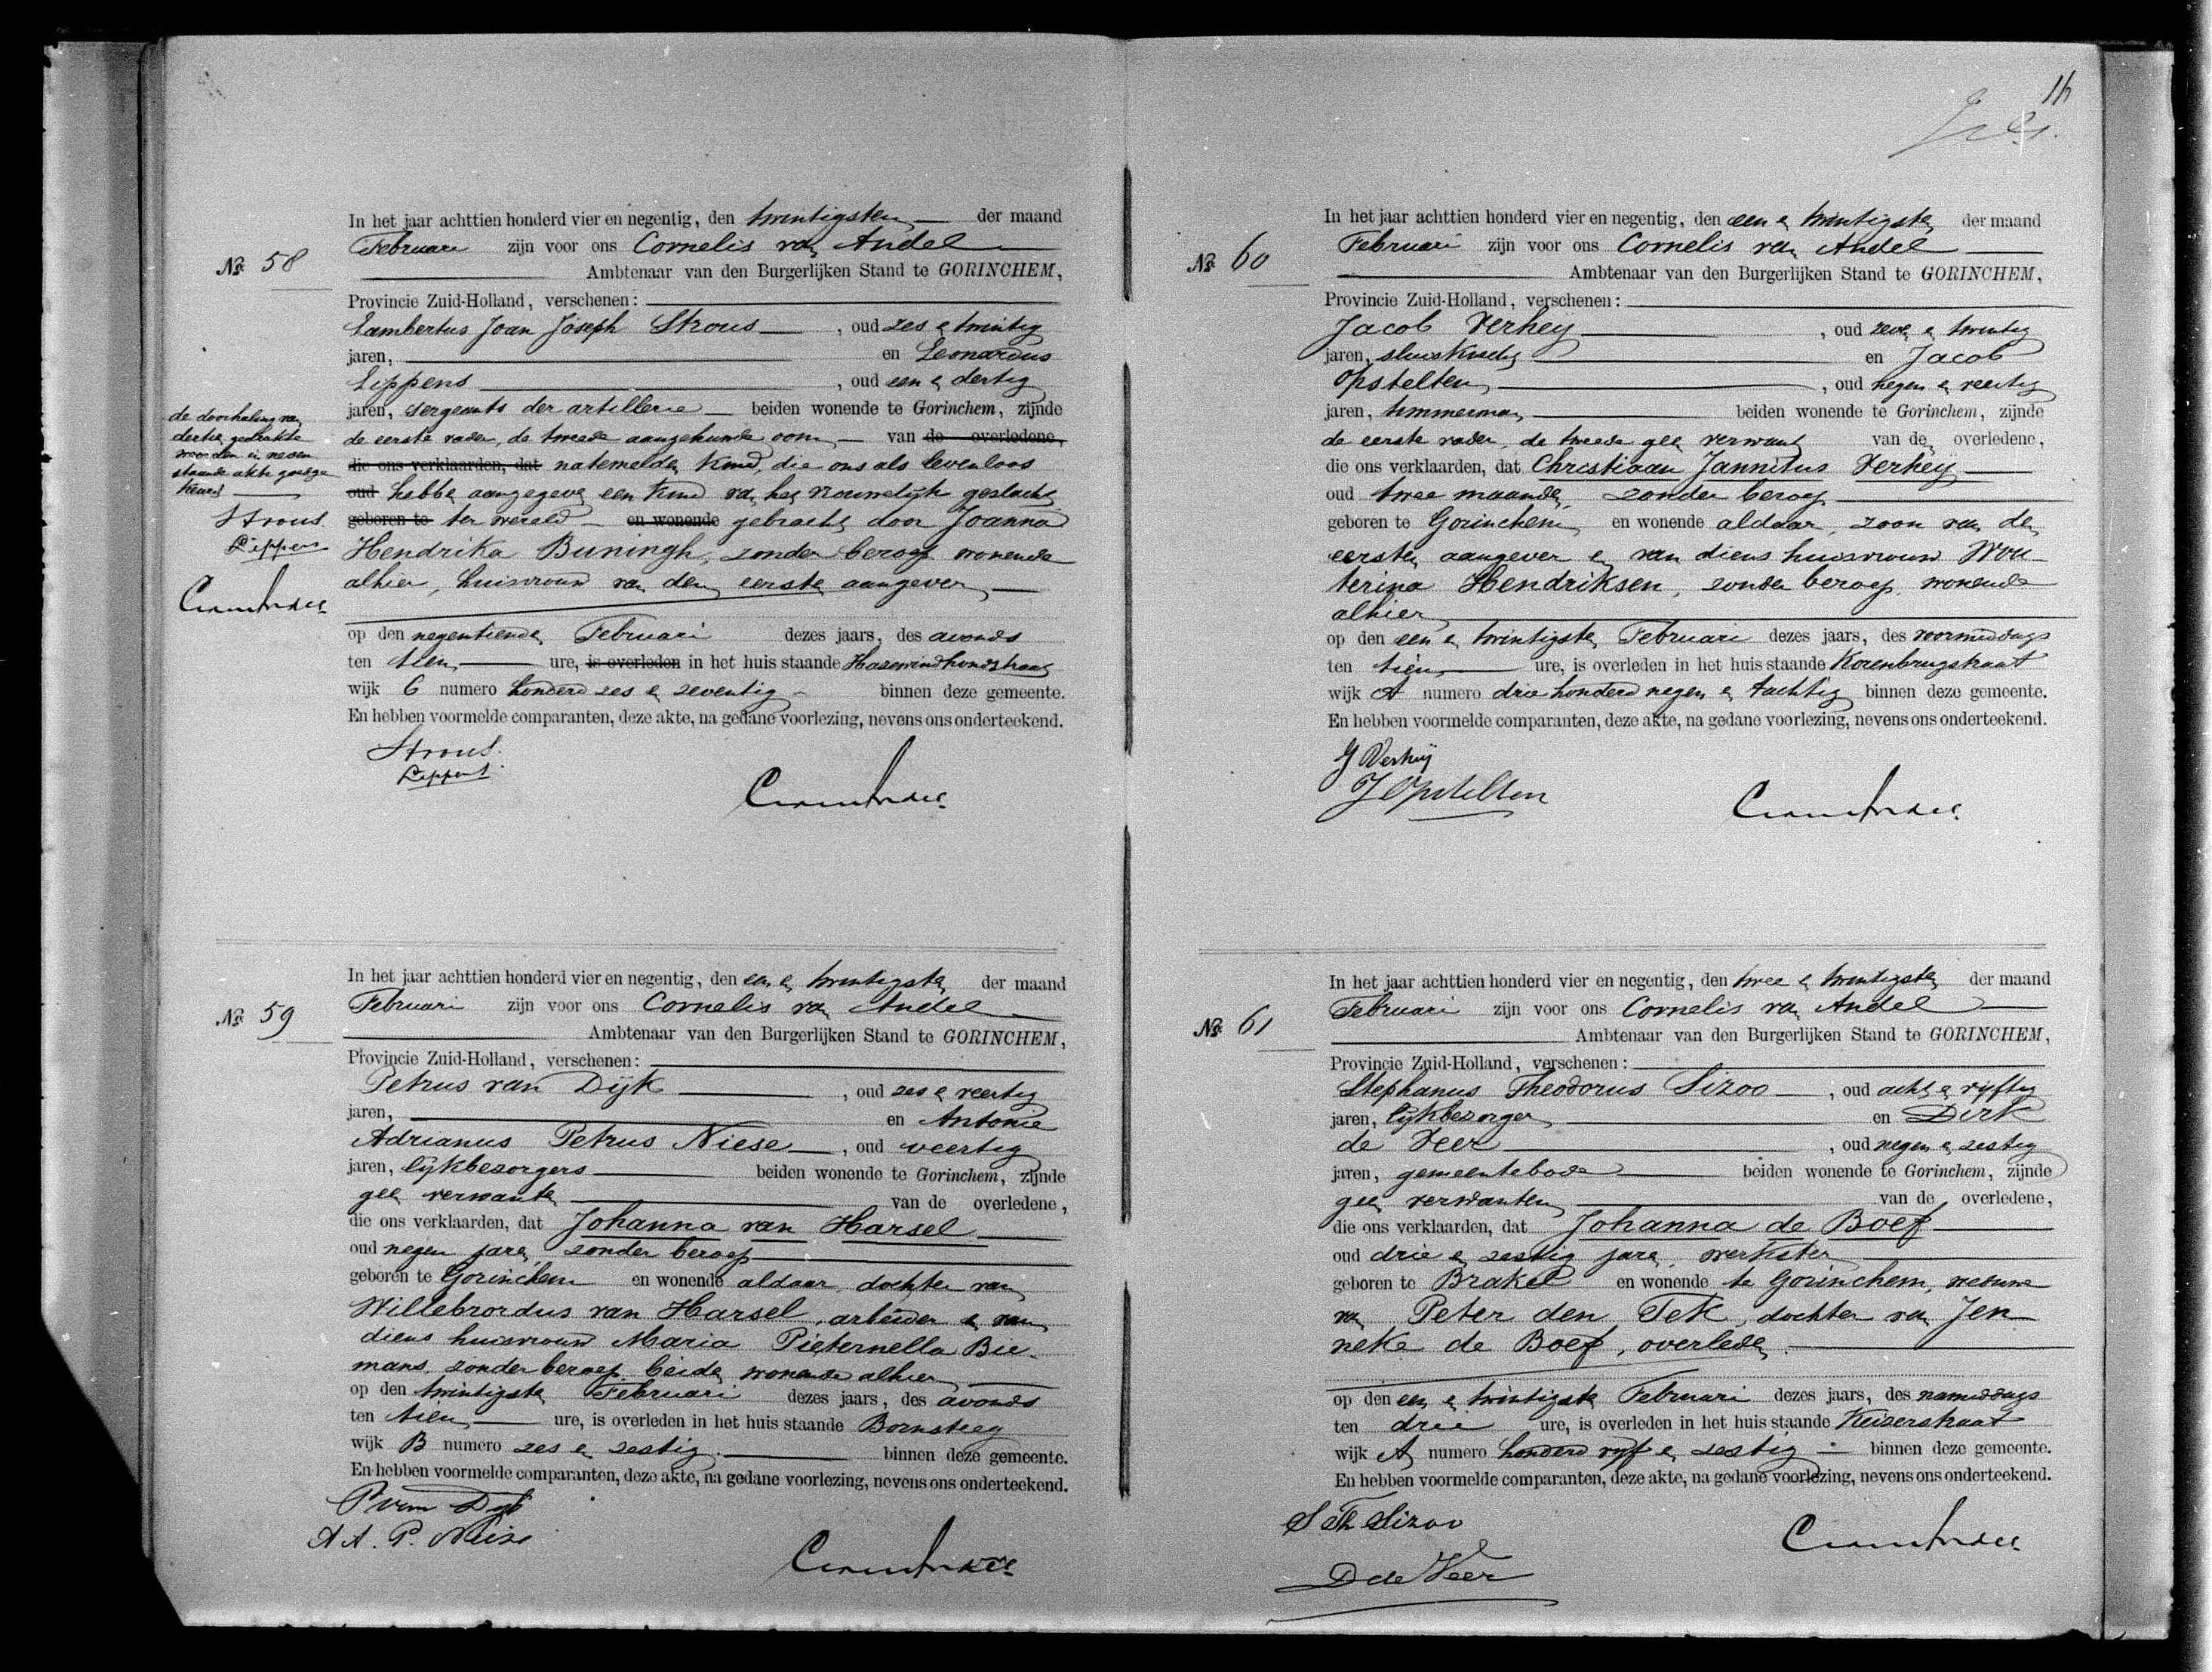 In het jaar achttien honderd vier en negentig, den twintigsten der maand
Februari zijn voor ons Cornelis van Andel
No 58
Ambtenaar van den Burgerlijken Stand te GORINCHEM,
Provincie Zuid-Holland, verschenen:
Lambertus Joan Joseph Strous, oud zes en twintig
jaren, en Leonardus
Lippens, oud een en dertig
jaren, sergeants der artillerie beiden wonende te Gorinchem, zijnde
de eerste vader, de tweede aangehuwde oom van de overledene,
die ons verklaarden, dat natemelden kind, die ons als levenloos
oud hebben aangegeven een kind van het vrouwelijk geslacht
geboren te ter wereld en wonende gebracht door Joanna
Hendrika Buningh, zonder beroep wonende
alhier, huisvrouw van den eersten aangever
op den negentienden Februari dezes jaars, des avonds
ten tien ure, is overleden in het huis staande Hazewindhondstraat
wijk C numero honderd zes en zeventig binnen deze gemeente.
En hebben voormelde comparanten, deze akte, na gedane voorlezing, nevens ons onderteekend.
Strous.
Lippens
de doorhaling van
dertien gedrukte
woorden in neven
staande akte goedge
keurd
Strous.
Lippens
In het jaar achttien honderd vier en negentig, den een en twintigsten der maand
Februari zijn voor ons Cornelis van Andel
No 59
Ambtenaar van den Burgerlijken Stand te GORINCHEM,
Provincie Zuid-Holland, verschenen:
Petrus van Dijk, oud zes en veertig
jaren, en Antonie
Adrianus Petrus Niese, oud veertig
jaren, lijkbezorgers beiden wonende te Gorinchem, zijnde
geen verwanten van de overledene,
die ons verklaarden, dat Johanna van Harsel
oud negen jaren, zonder beroep
geboren te Gorinchem en wonende aldaar, dochter van
Willebrordus van Harsel, arbeider en van
diens huisvrouw Maria Pieternella Bie-
mans zonder beroep, beiden wonende alhier
op den twintigsten Februari dezes jaars, des avonds
ten tien ure, is overleden in het huis staande Bornsteeg
wijk B numero zes en zestig. binnen deze gemeente.
En hebben voormelde comparanten, deze akte, na gedane voorlezing, nevens ons onderteekend.
P van Dijk
A A. P. Niese
In het jaar achttien honderd vier en negentig, den een en twintigsten der maand
Februari zijn voor ons Cornelis van Andel
No 60
Ambtenaar van den Burgerlijken Stand te GORINCHEM,
Provincie Zuid-Holland, verschenen:
Jacob Verheij, oud zeven en twintig
jaren, sluisknecht en Jacob
Opstelten, oud negen en veertig
jaren, timmerman, beiden wonende te Gorinchem, zijnde
de eerste vader, de tweede geen verwant van den overledene,
die ons verklaarden, dat Christiaan Jannitus Verheij
oud twee maanden, zonder beroep
geboren te Gorinchem en wonende aldaar, zoon van den
eersten aangever en van diens huisvrouw Wou-
terina Hendriksen, zonder beroep, wonende
alhier
op den een en twintigsten Februari dezes jaars, des voormiddags
ten tien ure, is overleden in het huis staande Korenbrugstraat
wijk A numero drie honderd negen en tachtig binnen deze gemeente.
En hebben voormelde comparanten, deze akte, na gedane voorlezing, nevens ons onderteekend.
J Verheij
J Opstelten
In het jaar achttien honderd vier en negentig, den twee en twintigsten der maand
Februari zijn voor ons Cornelis van Andel
No 61
Ambtenaar van den Burgerlijken Stand te GORINCHEM,
Provincie Zuid-Holland, verschenen:
Stephanus Theodorus Sizoo, oud acht en vijftig
jaren, lijkbezorger en Dirk
de Veer, oud negen en zestig
jaren, gemeentebode beiden wonende te Gorinchem, zijnde
geen verwanten van de overledene,
die ons verklaarden, dat Johanna de Boef
oud drie en zestig jaren, werkster
geboren te Brakel en wonende te Gorinchem, weduwe
van Peter den Tek, dochter van Jen
neke de Boef, overleden.
op den een en twintigsten Februari dezes jaars, des namiddags
ten drie ure, is overleden in het huis staande Keizerstraat
wijk A numero honderd vijf en zestig binnen deze gemeente.
En hebben voormelde comparanten, deze akte, na gedane voorlezing, nevens ons onderteekend.
S Th Sizoo
D de Veer